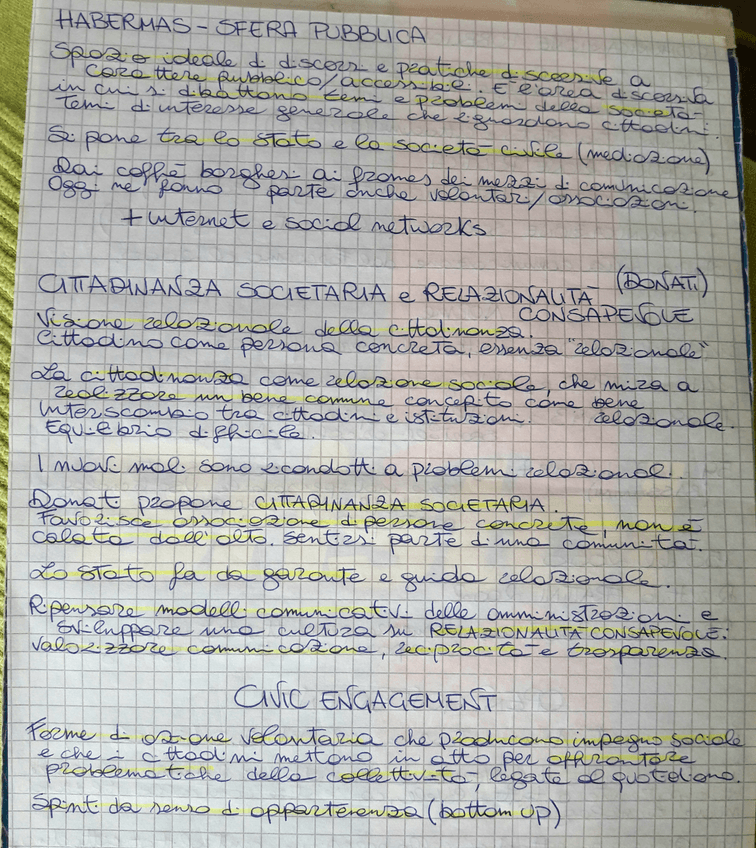 HABERMAS - SFERA PUBBLICA
Spazio ideale di discorsi e pratiche discorsive a
carattere pubblico/accessibile. E' l'area discorsiva
in cui si dibattono temi e problemi della società -
temi di interesse generale che riguardano cittadini.
Si pone tra lo stato e la società civile (mediazione)
Dai caffè borghesi ai promos dei mezzi di comunicazione
Oggi ne fanno parte anche volontari/associazioni.
+ internet e social networks
CITTADINANZA SOCIETARIA e RELAZIONALITÀ (DONATI)
CONSAPEVOLE
Visione relazionale della cittadinanza.
Cittadino come persona concreta, essenza "relazionale"
La cittadinanza come relazione sociale, che mira a
realizzare un bene comune concepito come bene
interscambio tra cittadini e istituzioni. relazionale.
Equilibrio difficile.
I nuovi mali sono ricondotti a problemi relazionali.
Donati propone CITTADINANZA SOCIETARIA.
Favorisce associazione di persone concrete, non è
calata dall'alto. Sentirsi parte di una comunità.
Lo stato fa da garante e guida relazionale.
Ripensare modelli comunicativi delle amministrazioni e
sviluppare una cultura su RELAZIONALITÀ CONSAPEVOLE:
valorizzare comunicazione, reciprocità e trasparenza.
CIVIC ENGAGEMENT
Forme di azione volontaria che producono impegno sociale
e che i cittadini mettono in atto per affrontare
problematiche della collettività, legate al quotidiano.
Spinti da senso di appartenenza (bottom up)